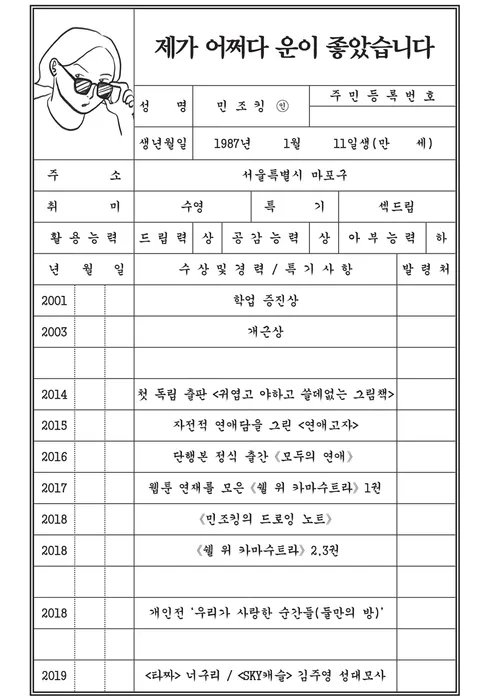 제가 어쩌다 운이 좋았습니다
성 명 민조킹 ㊞ 주민등록번호
생년월일 1987년 1월 11일생(만 세)
주 소 서울특별시 마포구
취 미 수영 특 기 섹드립
활용능력 드립력 상 공감능력 상 아부능력 하
년 월 일 수상및경력/특기사항 발령처
2001 학업 증진상
2003 개근상
2014 첫 독립 출판 <귀엽고 야하고 쓸데없는 그림책>
2015 자전적 연애담을 그린 <연애고자>
2016 단행본 정식 출간 《모두의 연애》
2017 웹툰 연재를 모은 《쉘 위 카마수트라》 1권
2018 《민조킹의 드로잉 노트》
2018 《쉘 위 카마수트라》 2.3권
2018 개인전 '우리가 사랑한 순간들(둘만의 방)'
2019 <타짜> 너구리 / <SKY캐슬> 김주영 성대모사